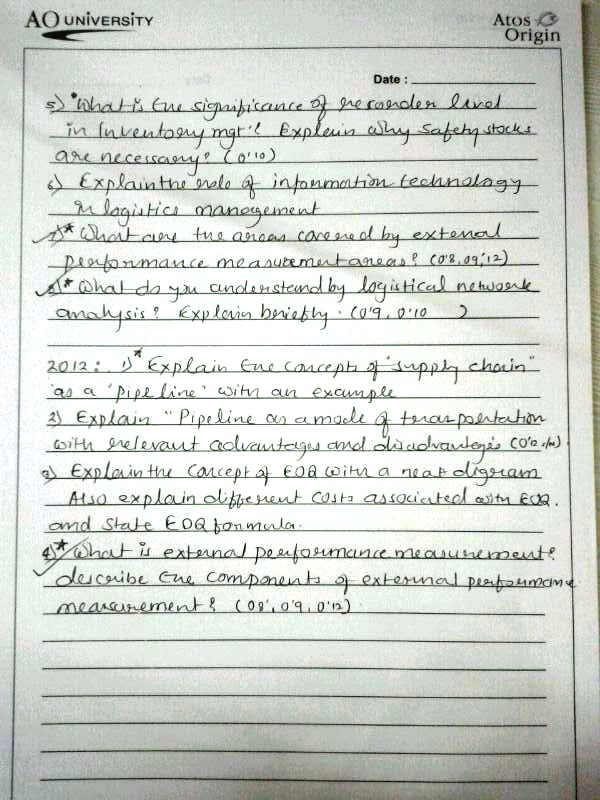 AO UNIVERSITY
Atos
Origin
Date :
5) *What is the significance of recorder level
in Inventory mgt? Explain why safety stocks
are necessary? (0'10)
6) Explain the role of information technology
in logistics management
7)* What are the areas covered by external
performance measurement areas? (0'8, 09, '12)
8)* What do you understand by logistical network
analysis? Explain briefly. (0'9, 0'10 )
2012: 1)* Explain the concepts of "supply chain"
as a 'pipeline' with an example
2) Explain "Pipeline as a mode of transportation
with relevant advantages and disadvantages (0'12
3) Explain the concept of EOQ with a neat digram
Also explain different costs associated with EOQ.
and State EOQ formula.
4)* What is external performance measurement?
describe the components of external performance
measurement? (08', 0'9, 0'12)